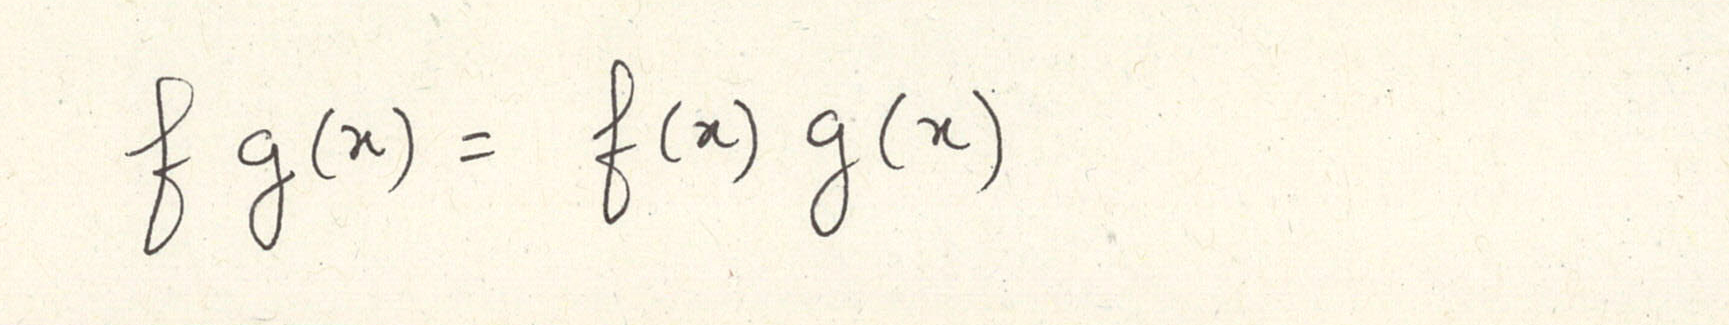 f g(x) = f(x) g(x)